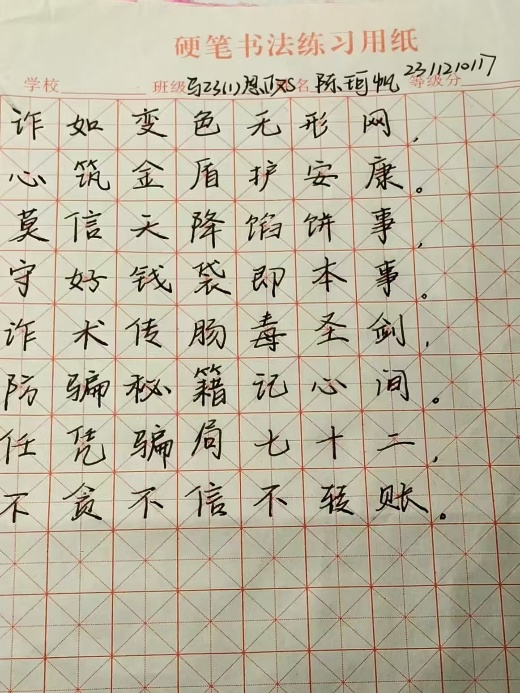 硬笔书法练习用纸
学校 班级 名 陈珂帆 等级分 2311210117
诈如变色无形网,
心筑金盾护安康。
莫信天降馅饼事,
守好钱袋即本事。
诈术传肠毒圣剑,
防骗秘籍记心间。
任凭骗局七十二,
不贪不信不转账。